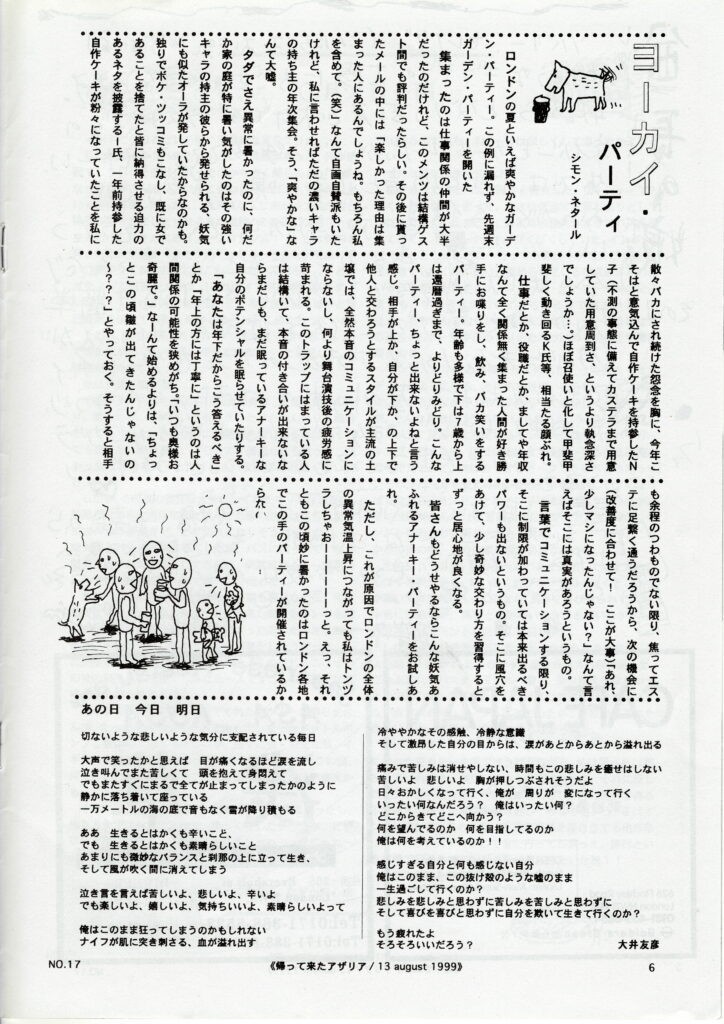 ヨーカイ・
パーティ
シモン・ネタール
ロンドンの夏といえば爽やかなガーデ
ン・パーティー。この例に漏れず、先週末
ガーデン・パーティーを開いた
集まったのは仕事関係の仲間が大半
だったのだけれど、このメンツは結構ゲス
ト間でも評判だったらしい。その後に貰っ
たメールの中には「楽しかった理由は集
まった人にあるんでしょうね。もちろん私
を含めて。(笑)」なんて自画自賛派もいた
けれど、私に言わせればただの濃いキャラ
の持ち主の年次集会。そう、「爽やかな」な
んて大嘘。
タダでさえ異常に暑かったのに、何だ
か家の庭が特に暑い気がしたのはその強い
キャラの持主の彼らから発せられる、妖気
にも似たオーラが発していたからなのかも。
独りでボケ・ツッコミもこなし、既に女で
あることを捨てたと皆に納得させる迫力の
あるネタを披露するI氏、一年前持参した
自作ケーキが粉々になっていたことを私に
散々バカにされ続けた怨念を胸に、今年こ
そはと意気込んで自作ケーキを持参したN
子(不測の事態に備えてカステラまで用意
していた用意周到さ、というより執念深さ
でしょうか…)ほぼ召使いと化して甲斐甲
斐しく動き回るK氏等、相当たる顔ぶれ。
仕事だとか、役職だとか、ましてや年収
なんて全く関係無く集まった人間が好き勝
手にお喋りをし、飲み、バカ笑いをする
パーティー。年齢も多様で下は7歳から上
は還暦過ぎまで、よりどりみどり。こんな
パーティー、ちょっと出来ないよねと言う
感じ。相手が上か、自分が下か、の上下で
他人と交わろうとするスタイルが主流の土
壌では、全然本音のコミュニケーションに
ならないし、何より舞台演技後の疲労感に
苛まれる。このトラップにはまっている人
は結構いて、本音の付き合いが出来ないな
らまだしも、まだ眠っているアナーキーな
自分のポテンシャルを眠らせていたりする。
「あなたは年下だからこう答えるべき」
とか「年上の方には丁寧に」というのは人
間関係の可能性を狭めがち。『いつも奥様お
奇麗で。』なーんて始めるよりは、「ちょっ
とこの頃皺が出てきたんじゃないの
〜???」とやっておく。そうすると相手
も余程のつわものでない限り、焦ってエス
テに足繋く通うだろうから、次の機会に
(改善度に合わせて! ここが大事)「あれ、
少しマシになったんじゃない?」なんて言
えばそこには真実があろうというもの。
言葉でコミュニケーションする限り、
そこに制限が加わっていては本来出るべき
パワーも出ないというもの。そこに風穴を
あけて、少し奇妙な交わり方を習得すると
ずっと居心地が良くなる。
皆さんもどうせやるならこんな妖気あ
ふれるアナーキー・パーティーをお試しあ
れ。
ただし、これが原因でロンドンの全体
の異常気温上昇につながっても私はトンヅ
ラしちゃおーーーーーーっと。えっ、それ
ともこの頃妙に暑かったのはロンドン各地
でこの手のパーティーが開催されているか
らた
あの日　今日　明日
切ないような悲しいような気分に支配されている毎日
大声で笑ったかと思えば　目が痛くなるほど涙を流し
泣き叫んでまた苦しくて　頭を抱えて身悶えて
でもまたすぐにまるで全てが止まってしまったかのように
静かに落ち着いて座っている
一万メートルの海の底で音もなく雪が降り積もる
ああ　生きるとはかくも辛いこと、
でも　生きるとはかくも素晴らしいこと
あまりにも微妙なバランスと刹那の上に立って生き、
そして風が吹く間に消えてしまう
泣き言を言えば苦しいよ、悲しいよ、辛いよ
でも楽しいよ、嬉しいよ、気持ちいいよ、素晴らしいよって
俺はこのまま狂ってしまうのかもしれない
ナイフが肌に突き刺さる、血が溢れ出す
冷ややかなその感触、冷静な意識
そして激昂した自分の目からは、涙があとからあとから溢れ出る
痛みで苦しみは消せやしない、時間もこの悲しみを癒せはしない
苦しいよ　悲しいよ　胸が押しつぶされそうだよ
日々おかしくなって行く、俺が　周りが　変になって行く
いったい何なんだろう？　俺はいったい何？
どこからきてどこへ向かう？
何を望んでるのか　何を目指してるのか
俺は何を考えているのか！！
感じすぎる自分と何も感じない自分
俺はこのまま、この抜け殻のような嘘のまま
一生過ごして行くのか？
悲しみを悲しみと思わずに苦しみを苦しみと思わずに
そして喜びを喜びと思わずに自分を欺いて生きて行くのか？
もう疲れたよ
そろそろいいだろう？
大井友彦
NO.17
《帰って来たアザリア / 13 august 1999》
6